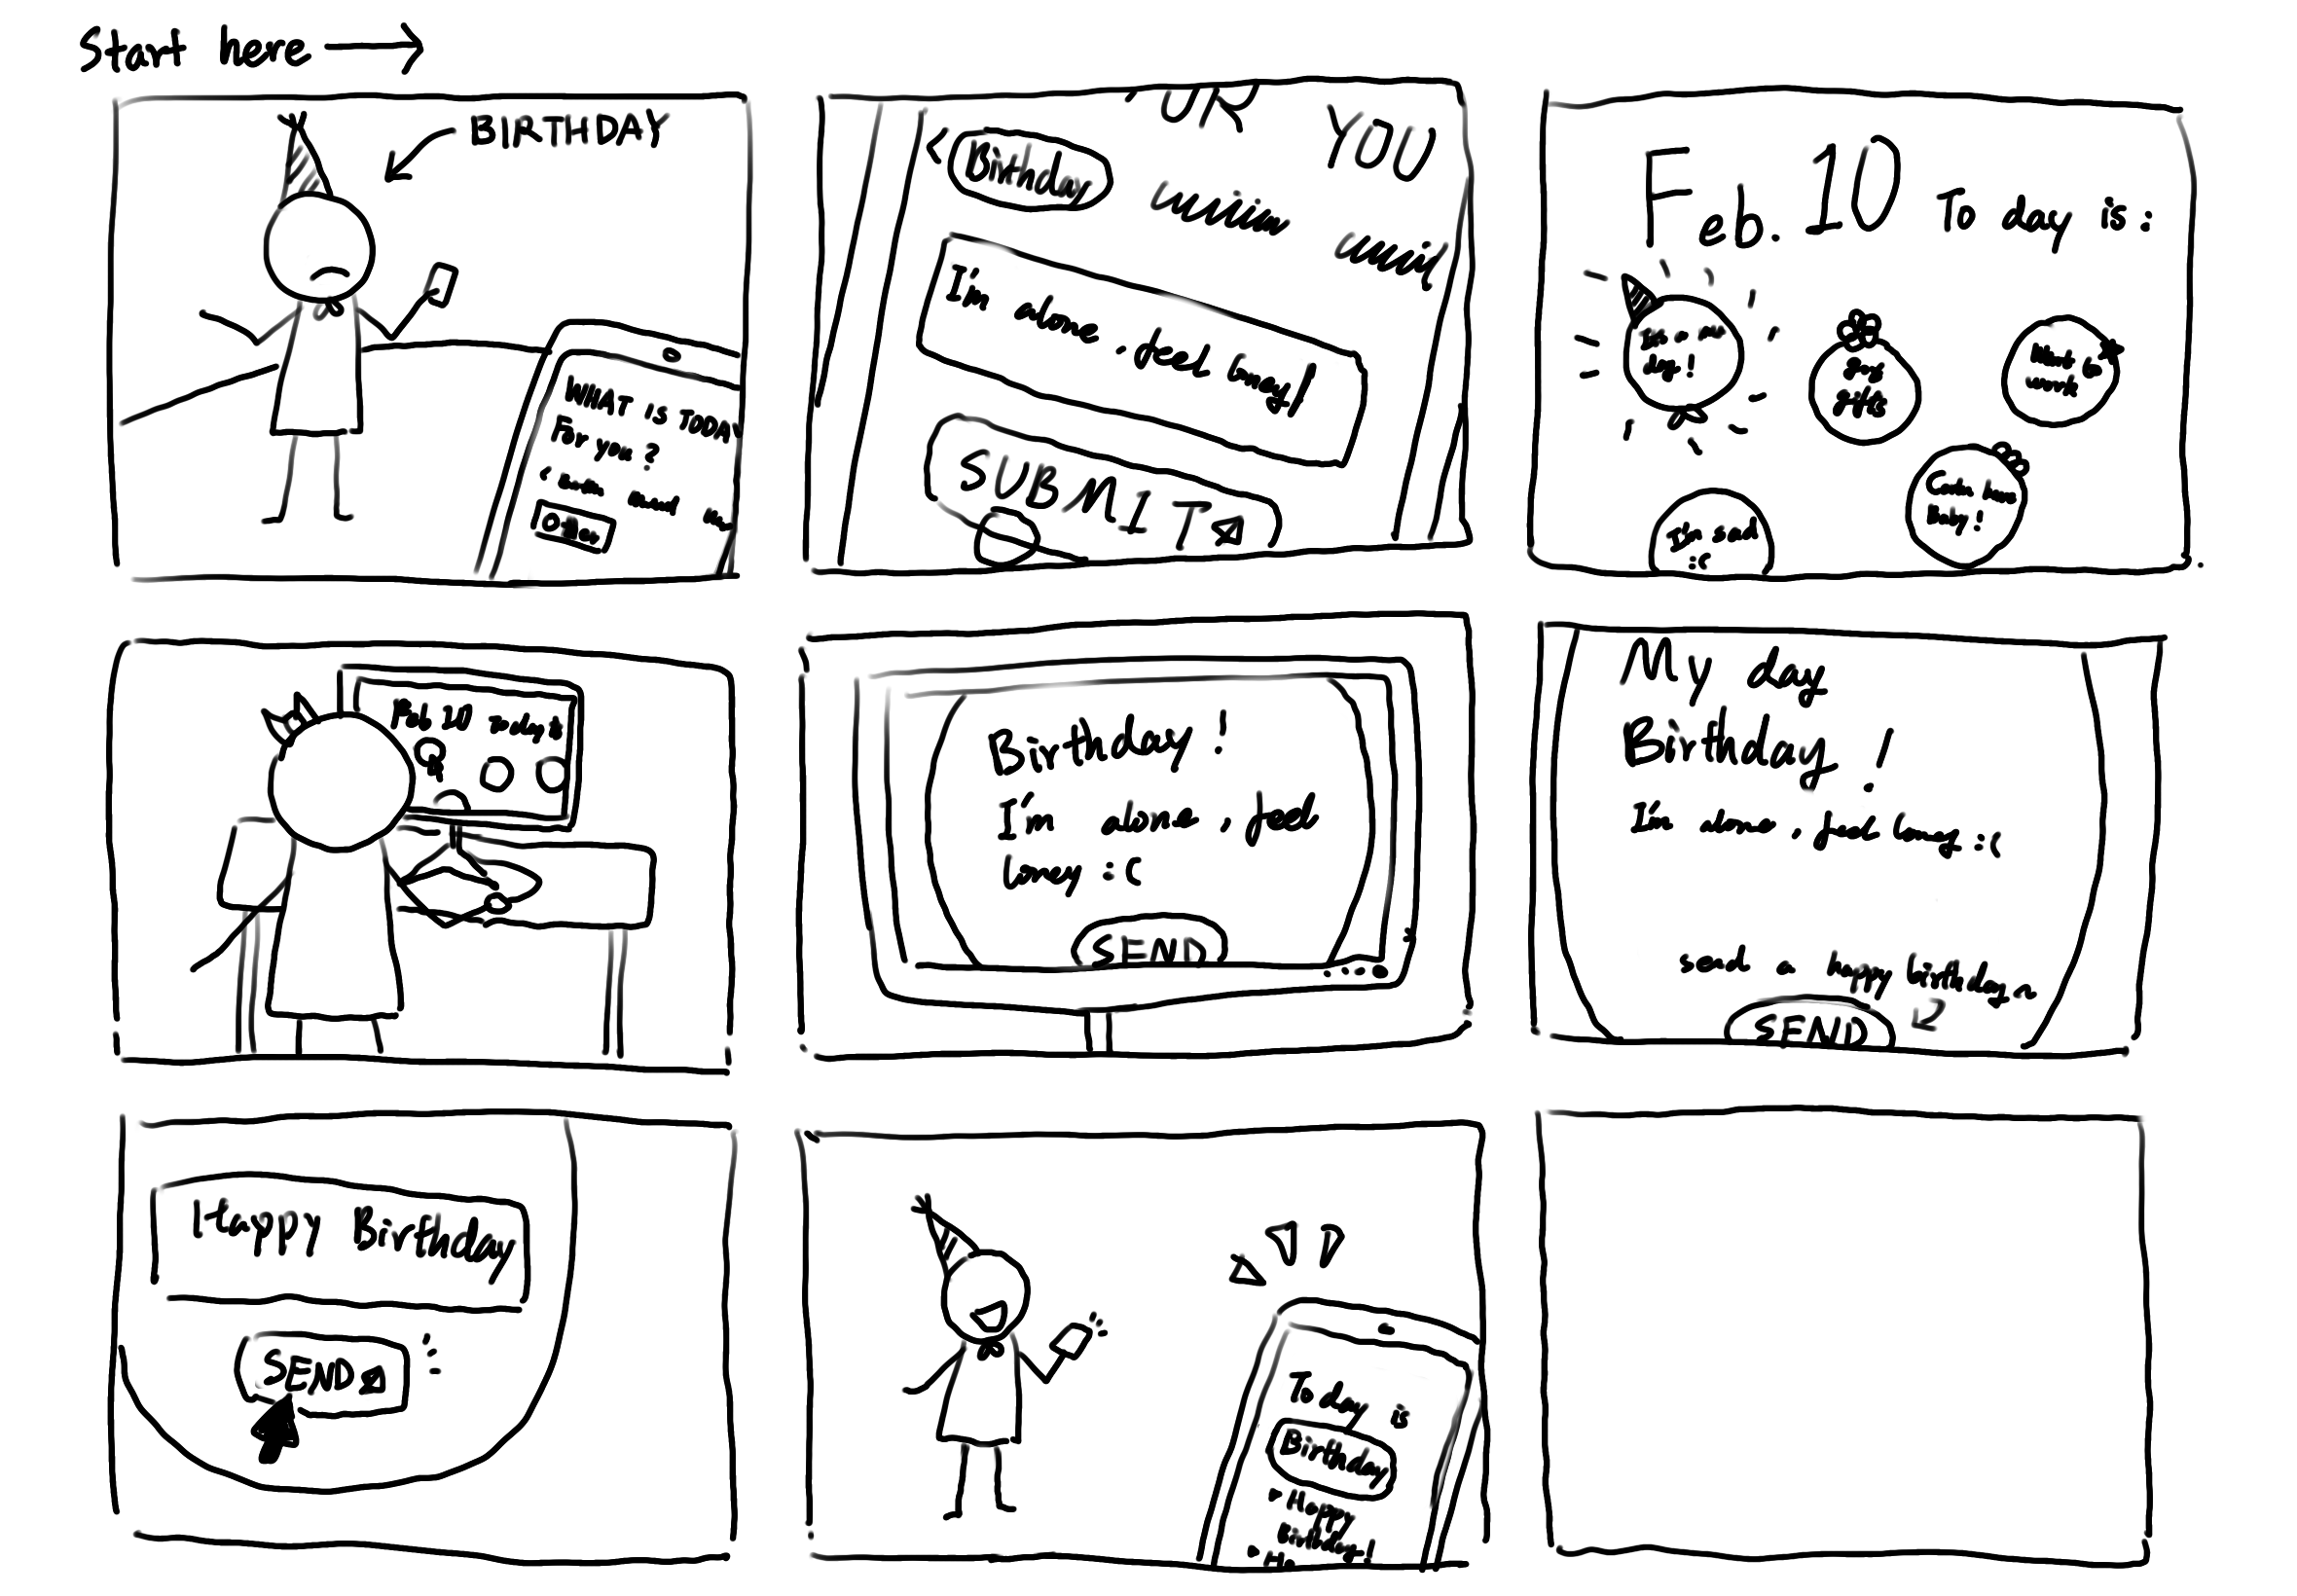 Start here
BIRTHDAY
WHAT IS TODAY
For you?
UR YOU
Birthday
I'm alone, feel loney
SUBMIT
Feb. 10 To day is:
day!
Buy
gifts
Want to
work
Baby!
I'm sad
:(
Feb 10 Today is
Birthday!
I'm alone, feel
loney :(
SEND
My day
Birthday!
I'm alone, feel loney :(
send a happy birthday~
SEND
Happy Birthday
SEND
To day is
Birthday
Happy
Birthday!
Ha